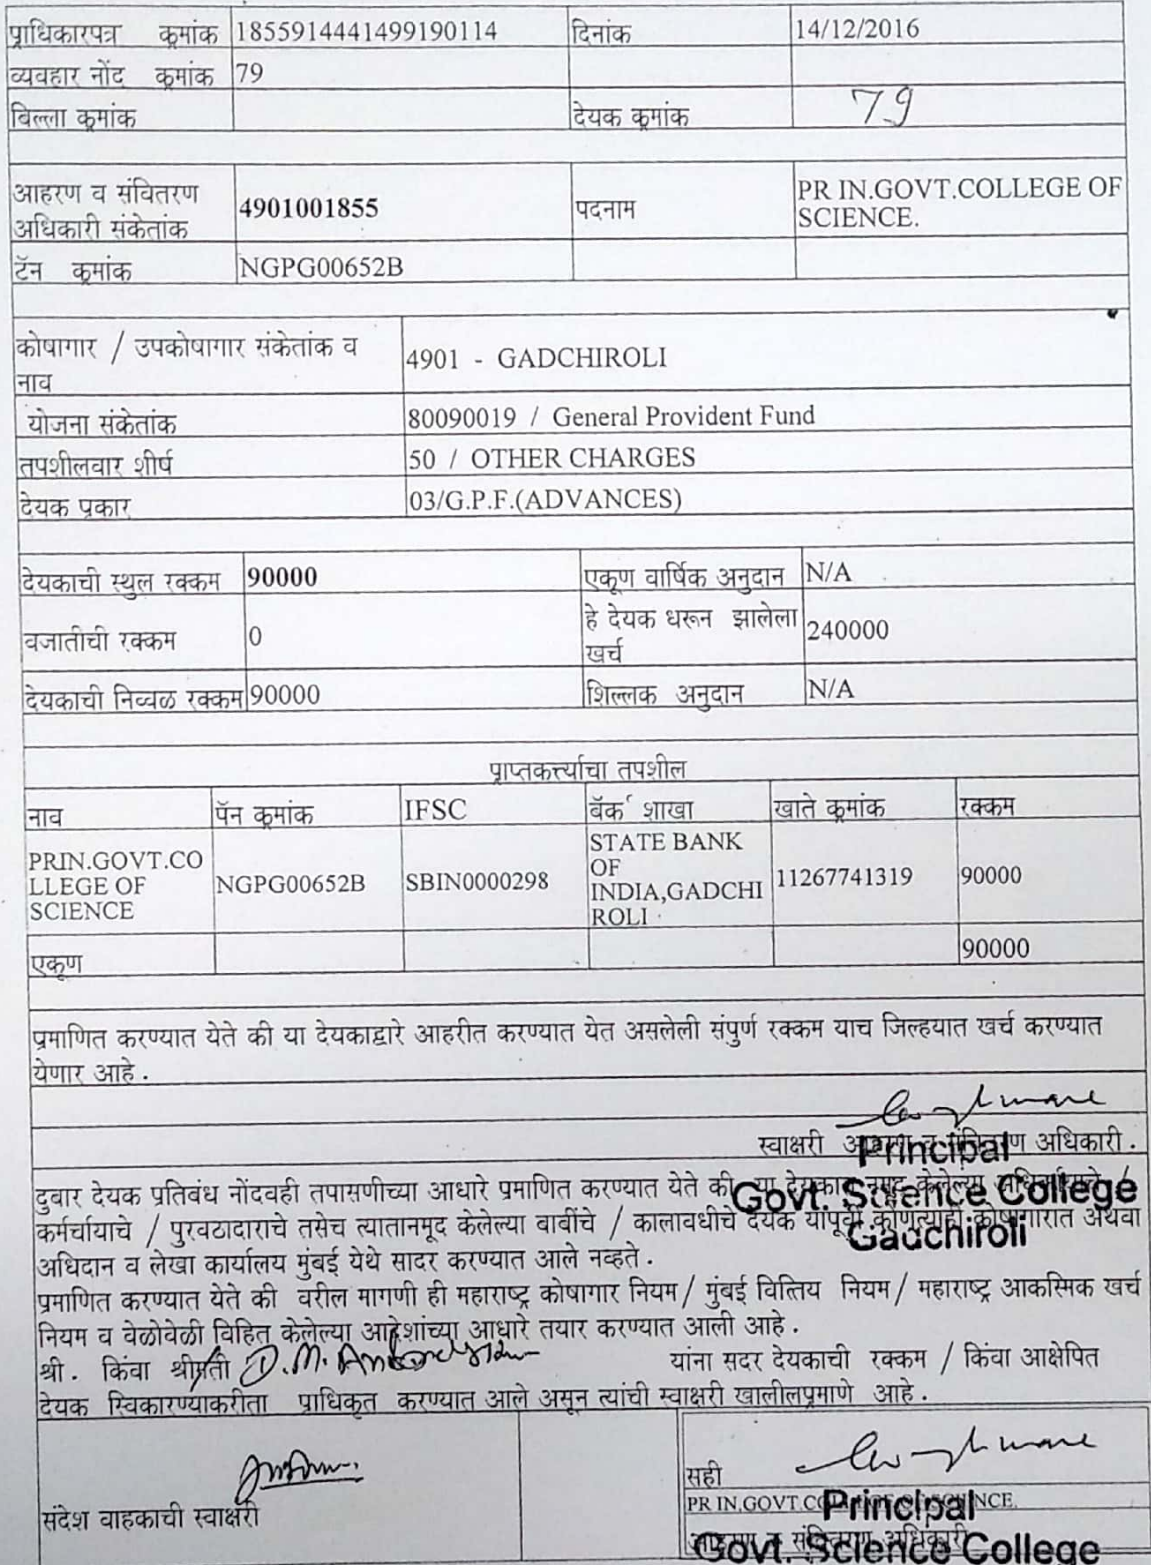 प्राधिकारपत्र क्रमांक 1855914441499190114 दिनांक 14/12/2016
व्यवहार नोंद क्रमांक 79
बिल्ला क्रमांक देयक क्रमांक 79
आहरण व संवितरण
अधिकारी संकेतांक 4901001855 पदनाम PR IN.GOVT.COLLEGE OF
SCIENCE.
टॅन क्रमांक NGPG00652B
कोषागार / उपकोषागार संकेतांक व
नाव 4901 - GADCHIROLI
योजना संकेतांक 80090019 / General Provident Fund
तपशीलवार शीर्ष 50 / OTHER CHARGES
देयक प्रकार 03/G.P.F.(ADVANCES)
देयकाची स्थुल रक्कम 90000 एकूण वार्षिक अनुदान N/A
वजातीची रक्कम 0 हे देयक धरून झालेला
खर्च 240000
देयकाची निव्वळ रक्कम 90000 शिल्लक अनुदान N/A
प्राप्तकर्त्याचा तपशील
नाव पॅन क्रमांक IFSC बॅंक शाखा खाते क्रमांक रक्कम
PRIN.GOVT.CO
LLEGE OF
SCIENCE NGPG00652B SBIN0000298 STATE BANK
OF
INDIA,GADCHI
ROLI 11267741319 90000
एकूण 90000
प्रमाणित करण्यात येते की या देयकाद्वारे आहरीत करण्यात येत असलेली संपुर्ण रक्कम याच जिल्हयात खर्च करण्यात
येणार आहे.
स्वाक्षरी आहरण व संवितरण अधिकारी.
Principal
Govt. Science College
Gadchiroli
दुबार देयक प्रतिबंध नोंदवही तपासणीच्या आधारे प्रमाणित करण्यात येते की या देयकात नमूद केलेल्या
कर्मचार्याचे / पुरवठादाराचे तसेच त्यातानमूद केलेल्या बाबींचे / कालावधीचे देयक यापूर्वी कोणत्याही कोषागारात अथवा
अधिदान व लेखा कार्यालय मुंबई येथे सादर करण्यात आले नव्हते.
प्रमाणित करण्यात येते की वरील मागणी ही महाराष्ट्र कोषागार नियम/ मुंबई वित्तिय नियम/ महाराष्ट्र आकस्मिक खर्च
नियम व वेळोवेळी विहित केलेल्या आदेशांच्या आधारे तयार करण्यात आली आहे.
श्री. किंवा श्रीमती D.M. यांना सदर देयकाची रक्कम / किंवा आक्षेपित
देयक स्विकारण्याकरीता प्राधिकृत करण्यात आले असून त्यांची स्वाक्षरी खालीलप्रमाणे आहे.
संदेश वाहकाची स्वाक्षरी
सही
PR IN.GOVT.COLLEGE OF SCIENCE.
आहरण व संवितरण अधिकारी
Principal
Govt. Science College